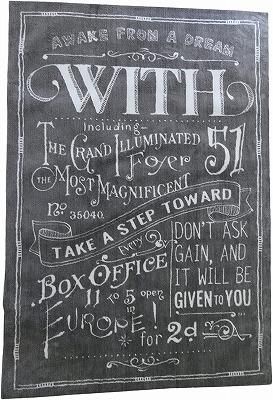 AWAKE FROM A DREAM
WITH
Including
THE GRAND ILLUMINATED
Foyer
51
THE MOST MAGNIFICENT
No. 35040.
TAKE A STEP TOWARD
Every
BOX OFFICE
11 to 5 open
in
EUROPE!
for 2d
DON'T ASK
GAIN, AND
IT WILL BE
GIVEN TO YOU